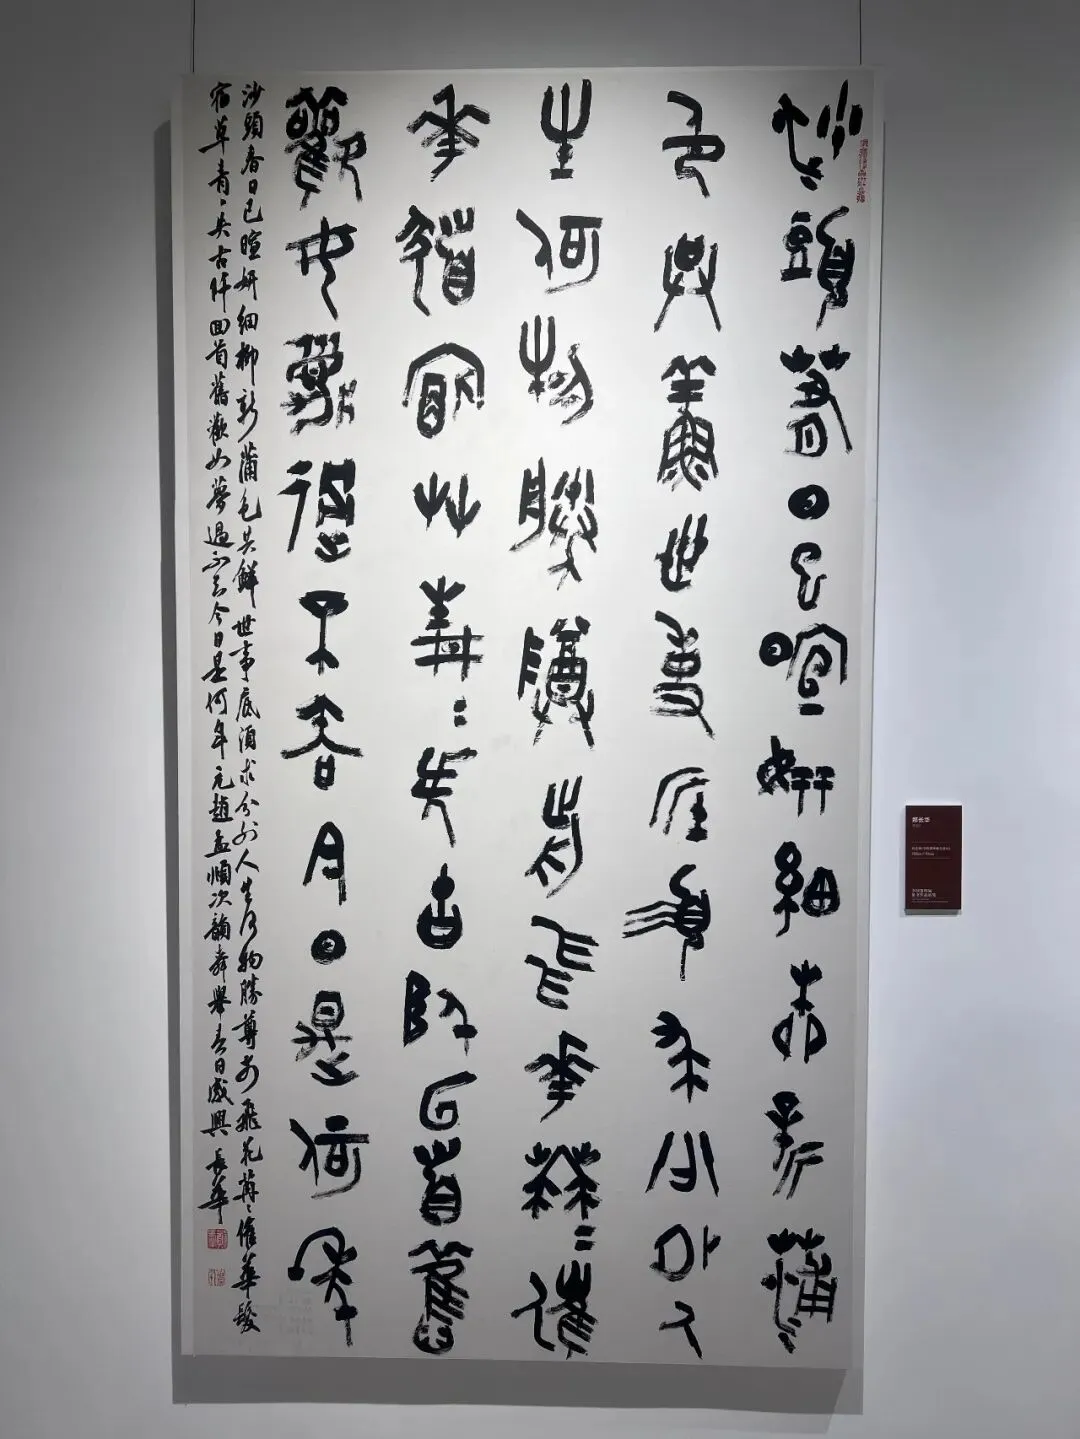 沙頭春日已暄妍細柳新蒲
色共鮮世事底須求分外人
生何物勝尊前飛花苒〻催
華髮宿艸青〻失古阡回首舊
歡如夢過不言今日是何年
沙頭春日已暄妍細柳新蒲色共鮮世事底須求分外人生何物勝尊前飛花苒〻催華髮
宿草青〻失古阡回首舊歡如夢過不言今日是何年元趙孟頫次韻舜舉春日感興長華